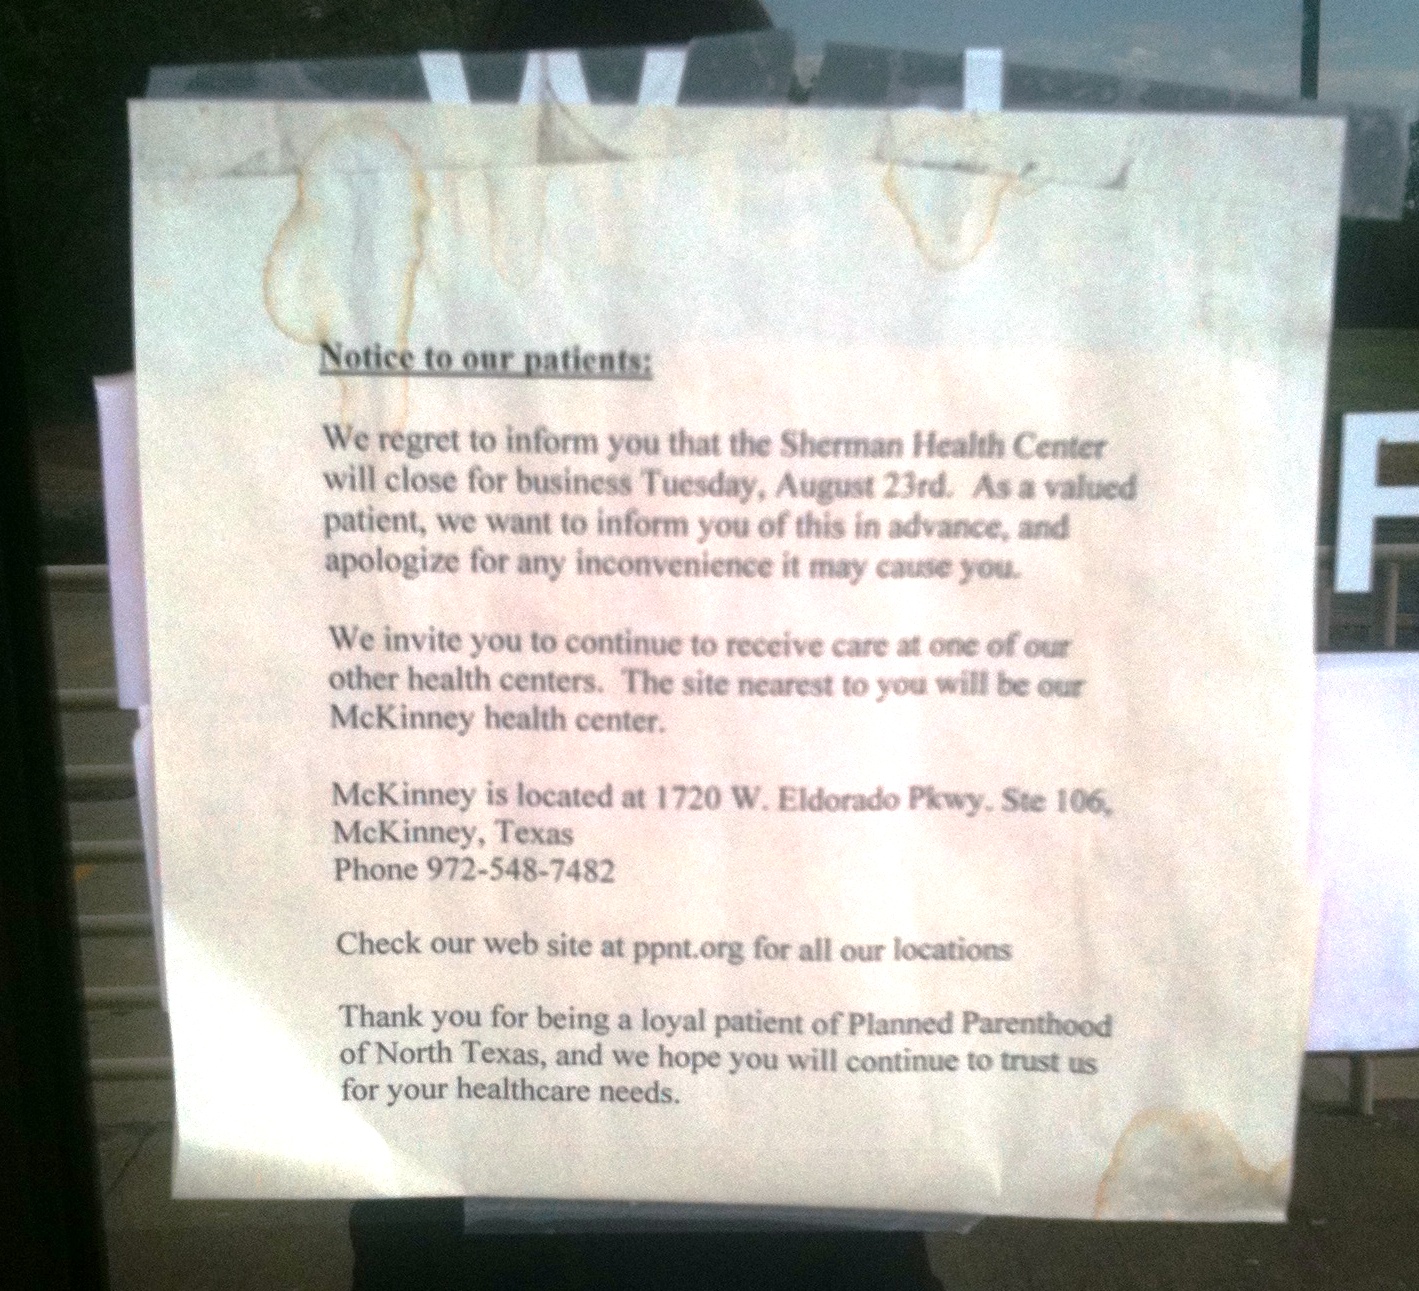 Notice to our patients:
We regret to inform you that the Sherman Health Center
will close for business Tuesday, August 23rd.  As a valued
patient, we want to inform you of this in advance, and
apologize for any inconvenience it may cause you.
We invite you to continue to receive care at one of our
other health centers.  The site nearest to you will be our
McKinney health center.
McKinney is located at 1720 W. Eldorado Pkwy. Ste 106,
McKinney, Texas
Phone 972-548-7482
Check our web site at ppnt.org for all our locations
Thank you for being a loyal patient of Planned Parenthood
of North Texas, and we hope you will continue to trust us
for your healthcare needs.